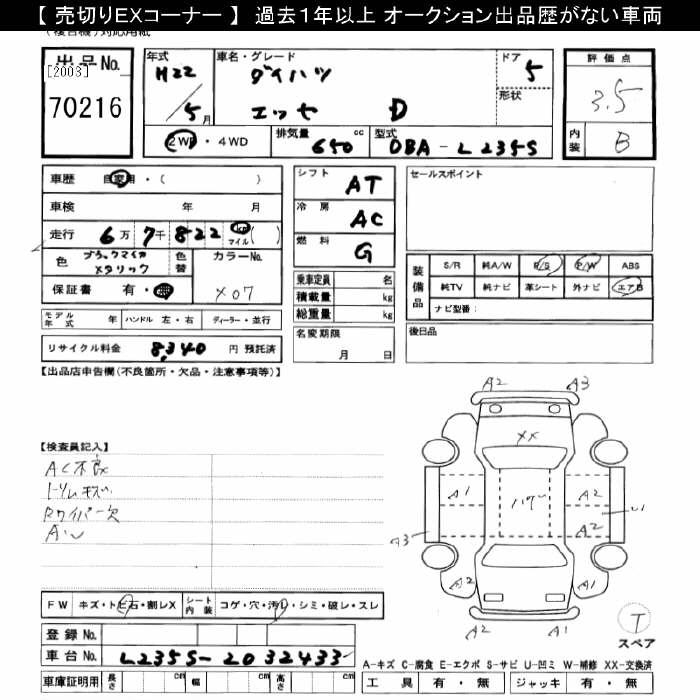 【 売切りEXコーナー 】 過去１年以上 オークション出品歴がない車両
(複合機)対応用紙
出品No. [2003] 70216
年式 H22 / 5月
車名・グレード ダイハツ エッセ D
ドア 5
形状
評価点 3.5
内装 B
2WD ・ 4WD
排気量 cc 650
型式 DBA - L235S
車歴 自家用 ・ ( )
車検 年 月
走行 6万 7千 822 km マイル ( )
色 ブラックマイカメタリック 色替
カラーNo. X07
保証書 有 ・ 無
シフト AT
冷房 AC
燃料 G
乗車定員 名
積載量 kg
総重量 kg
セールスポイント
装備品 S/R 純A/W P/S P/W ABS
純TV 純ナビ 革シート 外ナビ エアB
ナビ型番:
モデル年式 年 ハンドル 左 ・ 右 ディーラー ・ 並行
リサイクル料金 8,340 円 預託済
名変期限 月 日
後日品
【出品店申告欄(不良箇所・欠品・注意事項等)】
【検査員記入】
AC不良
トリムキズ
Rワイパー欠
A2 A3
XX
A1 A2
A2
A3 U1
A2 A1
A2 A1
T
スペア
FW キズ・トビ石・割レX シート内装 コゲ・穴・汚レ・シミ・破レ・スレ
登録No.
車台No. L235S-2032433
車庫証明用 長さ cm 幅 cm 高さ cm
A-キズ C-腐食 E-エクボ S-サビ U-凹ミ W-補修 XX-交換済
工具 有 ・ 無 ジャッキ 有 ・ 無